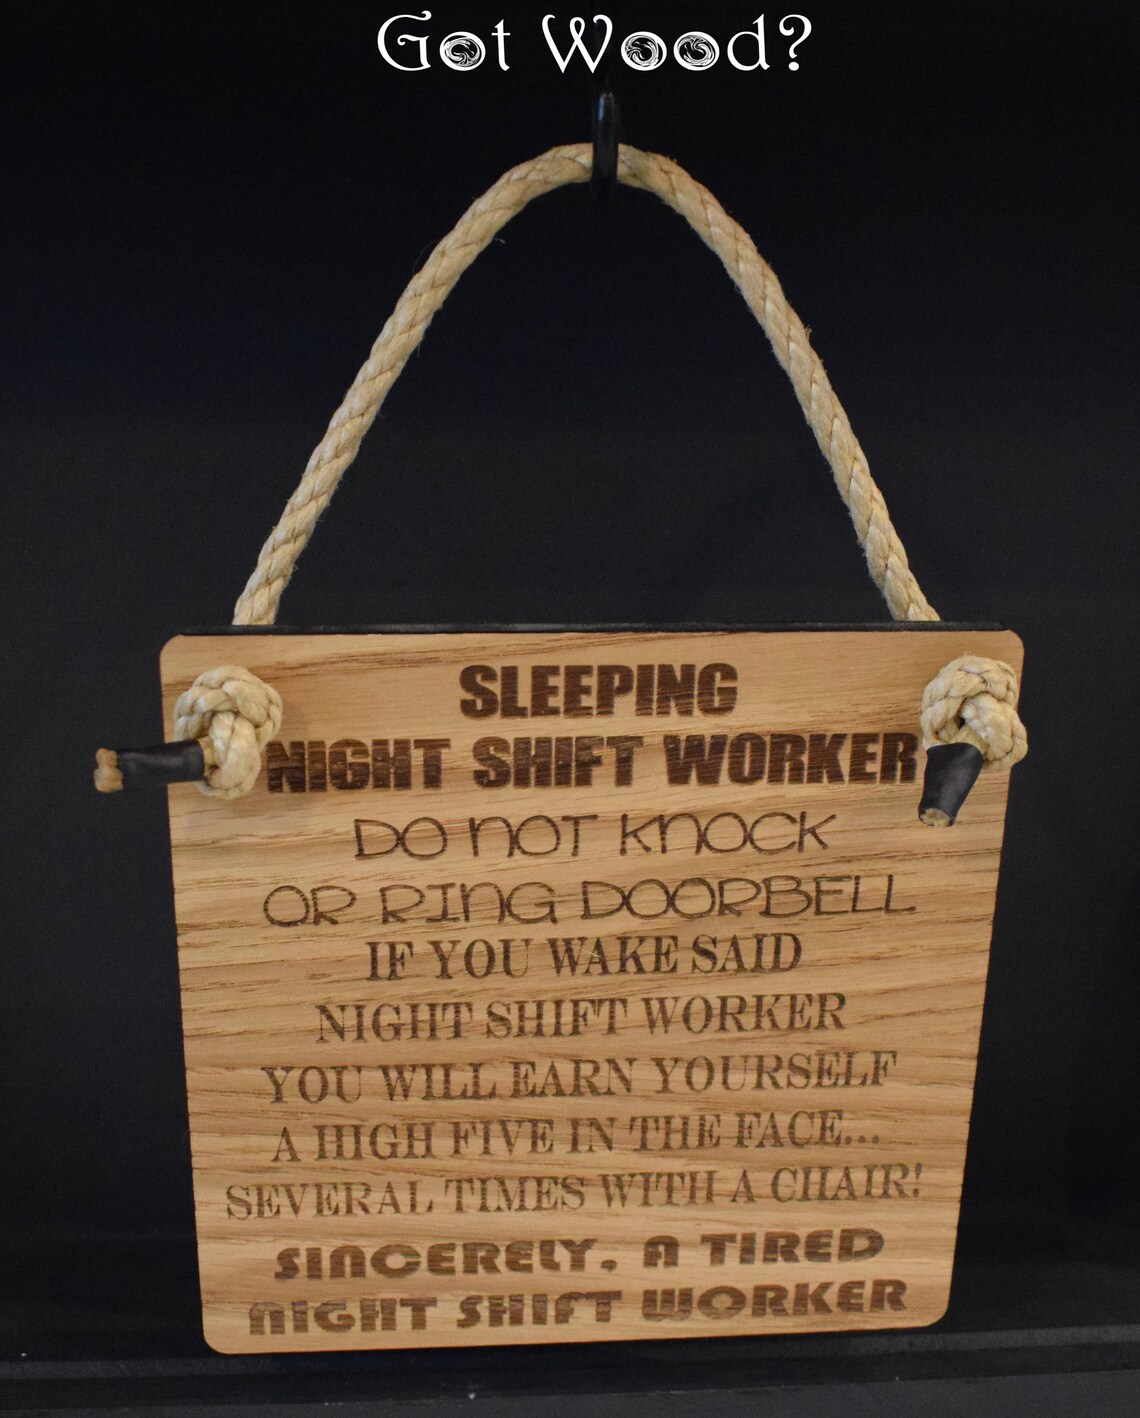 Got Wood?
SLEEPING
NIGHT SHIFT WORKER
DO NOT KNOCK
OR RING DOORBELL
IF YOU WAKE SAID
NIGHT SHIFT WORKER
YOU WILL EARN YOURSELF
A HIGH FIVE IN THE FACE...
SEVERAL TIMES WITH A CHAIR!
SINCERELY, A TIRED
NIGHT SHIFT WORKER